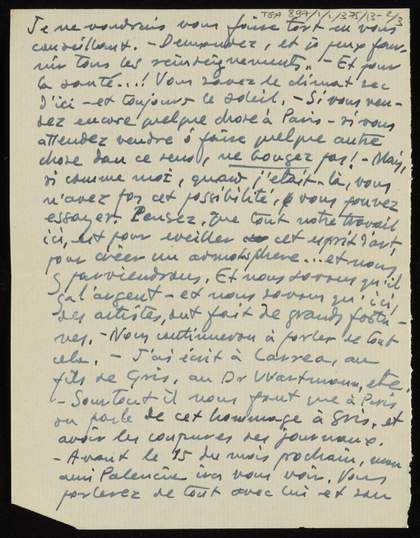 TGA 897/1/1/375/13-2/3
Je ne voudrais vous faire tort en vous
conseillant. - Demandez, et je peux four-
nir tous les renseignements. - Et pour
la santé...! Vous savez de climat sec
d'ici - et toujours le soleil. - Si vous ven-
dez encore quelque chose à Paris - si vous
attendez vendre o faire quelque autre
chose dan ce sens, ne bougez pas! - Mais,
si comme moi, quand j'était là, vous
n'avez pas cet possibilité, vous pouvez
essayer. Pensez, que tout notre travail
ici, est pour eveiller cet esprit d'art,
pour créer un admosphere... et nous
y parviendrons. Et nous savons qu'il
y a l'argent - et nous savons qu'ici,
des artistes, ont fait de grands fortu-
nes. - Nous continueron à parler de tout
cela. - J'ai écrit à Larrea, au
fils de Gris, au Dr Wartmann, etc.
- Surtout il nous faut que à Paris
on parle de cet hommage à Gris, et
avoir les coupures des journaux.
- Avant le 15 du mois prochain, mon
ami Palencia ira vous voir. Vous
parlerez de tout avec lui et son